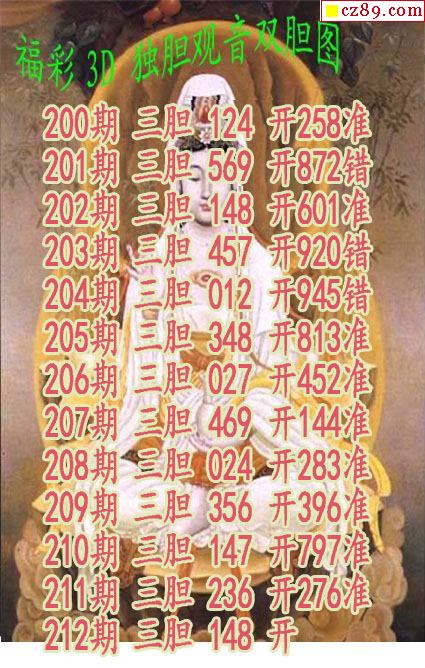 cz89.com
福彩 3D 独胆观音双胆图
200期 三胆 124 开258准
201期 三胆 569 开872错
202期 三胆 148 开601准
203期 三胆 457 开920错
204期 三胆 012 开945错
205期 三胆 348 开813准
206期 三胆 027 开452准
207期 三胆 469 开144准
208期 三胆 024 开283准
209期 三胆 356 开396准
210期 三胆 147 开797准
211期 三胆 236 开276准
212期 三胆 148 开